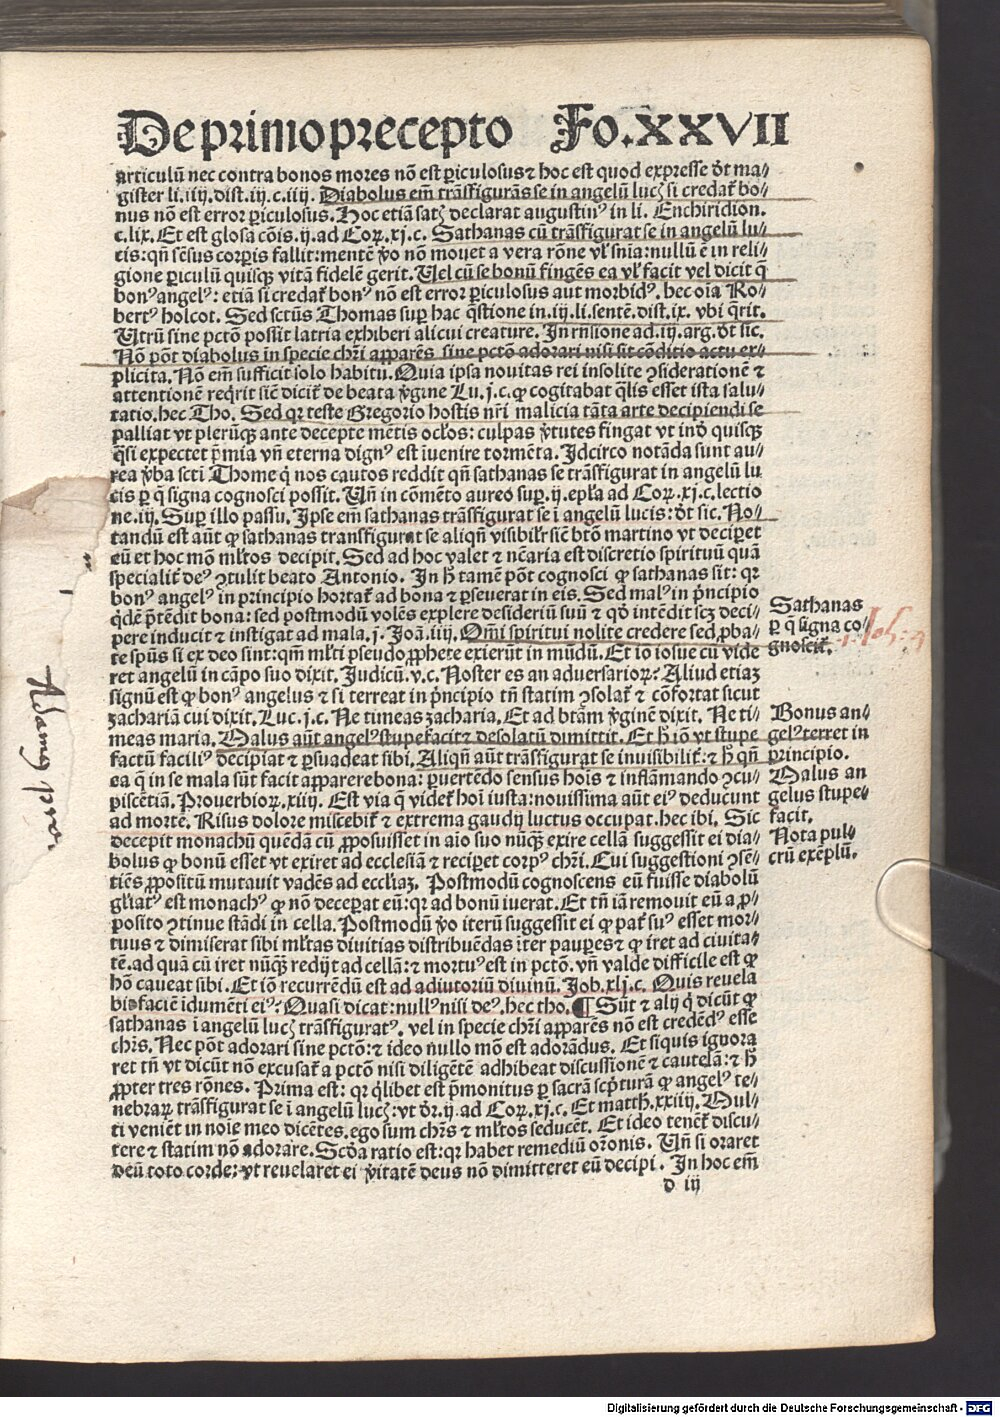 De primo precepto Fo. XXVII
articulū nec contra bonos mores nō est ꝑiculosus ⁊ hoc est quod expresse dt̄ ma⸗
gister li.iiij.dist.ij.c.iiij. Diabolus em̄ trāsfigurās se in angelū lucꝫ si credat᷑ bo⸗
nus nō est error ꝑiculosus. Hoc etiā satꝫ declarat augustinꝰ in li. Enchiridion.
c.lix. Et est glosa cōis.ij.ad Coꝝ.xj.c. Sathanas cū trāsfigurat se in angelū lu⸗
cis: qn̄ sēsus corꝑis fallit: mentē v̄o nō mouet a vera rōne vl̓ snīa: nullū ē in reli⸗
gione ꝑiculū quisqꝫ vitā fidelē gerit. Uel cū se bonū fingēs ea vl̓ facit vel dicit q̄
bonꝰ angelꝰ: etiā si credat᷑ bonꝰ nō est error ꝑiculosus aut morbidꝰ. hec oīa Ro⸗
bertꝰ holcot. Sed sctūs Thomas suꝑ hac q̄stione in.iij.li.sentē.dist.ix. vbi q̄rit.
Utrū sine pctō possit latria exhiberi alicui creature. In rn̄sione ad.iij.arg.dt̄ sic.
Nō pōt diabolus in specie chr̄i apparēs sine pctō adorari nisi sit cōditio actu ex⸗
plicita. Nō em̄ sufficit solo habitu. Quia ipsa nouitas rei insolite ꝯsiderationē ⁊
attentionē reqͥrit sic̄ dicit᷑ de beata v̓gine Lu.j.c. ꝙ cogitabat qͣlis esset ista salu⸗
tatio. hec Tho. Sed qꝛ teste Gregorio hostis nr̄i malicia tāta arte decipiendi se
palliat vt pleruqꝫ ante decepte mētis oclōs: culpas v̓tutes fingat vt indͤ quisqꝫ
qͣsi expectet p̄mia vn̄ eterna dignꝰ est iuenire tormēta. Idcirco notāda sunt au⸗
rea v̓ba scti Thome q̄ nos cautos reddit qn̄ sathanas se trāsfigurat in angelū lu
cis ꝑ q̄ signa cognosci possit. Un̄ in cōmēto aureo suꝑ.ij.epl̓a ad Coꝝ.xj.c.lectio
ne.iij. Suꝑ illo passu. Ipse em̄ sathanas trāsfigurat se ī angelū lucis: dt̄ sic. No⸗
tandū est aūt ꝙ sathanas transfigurat se aliqn̄ visibilr̓ sic̄ btō martino vt deciꝑet
eū et hoc mō ml̓tos decipit. Sed ad hoc valet ⁊ nc̄aria est discretio spirituū quā
specialit᷑ deꝰ ꝯtulit beato Antonio. In h̄ tamē pōt cognosci ꝙ sathanas sit: qꝛ
bonꝰ angelꝰ in principio hortat᷑ ad bona ⁊ ꝑseuerat in eis. Sed malꝰ in p̄ncipio
qͥdē p̄tēdit bona: sed postmodū volēs explere desideriū suū ⁊ qd̓ intēdit scꝫ deci⸗
pere inducit ⁊ instigat ad mala.j. Joā.iiij. Omī spiritui nolite credere sed ꝓba⸗
te spūs si ex deo sint: qm̄ ml̓ti pseudo ꝓphete exierūt in mūdū. Et iō iosue cū vide
ret angelū in cāpo suo dixit. Judicū.v.c. Noster es an adversarioꝝ? Aliud etiaꝫ
signū est ꝙ bonꝰ angelus ⁊ si terreat in p̄ncipio tn̄ statim ꝯsolat᷑ ⁊ cōfortat sicut
zachariā cui dixit. Luc.j.c. Ne timeas zacharia. Et ad btām v̓ginē dixit. Ne ti⸗
meas maria. Malus aūt angelꝰ stupefacit ⁊ desolatū dimittit. Et h̄ iō vt stupe
factū faciliꝰ decipiat ⁊ ꝑsuadeat sibi. Aliqn̄ aūt trāsfigurat se inuisibilit᷑: ⁊ h̄ qn̄
ea q̄ in se mala sūt facit apparere bona: ꝑuertēdo sensus hoīs ⁊ inflāmando ꝯcu⸗
piscētiā. Prouerbioꝝ.xiiij. Est via q̄ videt᷑ hoī iusta: nouissima aūt eiꝰ deducunt
ad mortē. Risus dolore miscebit᷑ ⁊ extrema gaudij luctus occupat. hec ibi. Sic
decepit monachū quēdā cū ꝓposuisset in aīo suo nūqꝫ exire cellā suggessit ei dia⸗
bolus ꝙ bonū esset vt exiret ad ecclesiā ⁊ reciꝑet corpꝰ chr̄i. Cui suggestioni ꝯsē⸗
tiēs ꝓpositū mutauit vadēs ad eccl̓iaꝫ. Postmodū cognoscens eū fuisse diabolū
gl̓iatꝰ est monachꝰ ꝙ nō deceꝑat eū: qꝛ ad bonū iuerat. Et tn̄ iā remouit eū a ꝓ⸗
posito ꝯtinue stādi in cella. Postmodū v̄o iterū suggessit ei ꝙ pat᷑ suꝰ esset mor⸗
tuus ⁊ dimiserat sibi ml̓tas diuitias distribuēdas īter pauꝑes ⁊ ꝙ iret ad ciuita⸗
tē. ad quā cū iret nūqꝫ redijt ad cellā: ⁊ mortuꝰ est in pctō. vn̄ valde difficile est ꝙ
hō caueat sibi. Et iō recurrēdū est ad adiutoriū diuinū. Job.xlj.c. Quis reuela
bit faciē idumēti eiꝰ? Quasi dicat: nullꝰ nisi deꝰ. hec tho. ¶ Sūt ⁊ alij q̄ dicūt ꝙ
sathanas ī angelū lucꝫ trāsfiguratꝰ. vel in specie chr̄i apparēs nō est credēdꝰ esse
chr̄s. Nec pōt adorari sine pctō: ⁊ ideo nullo mō est adorādus. Et siquis ignora
ret tn̄ vt dicūt nō excusat᷑ a pctō nisi diligētē adhibeat discussionē ⁊ cautelā: ⁊ h̄
ꝓpter tres rōnes. Prima est: qꝛ qͥlibet est p̄monitus ꝑ sacrā scp̄turā ꝙ angelꝰ te⸗
nebraꝝ trāsfigurat se ī angelū lucꝫ: vt dr̄.ij.ad Coꝝ.xj.c. Et matth.xxiiij. Mul⸗
ti veniēt in noīe meo dicētes. ego sum chr̄s ⁊ ml̓tos seducēt. Et ideo tenet᷑ discu⸗
tere ⁊ statim nō adorare. Scd̓a ratio est: qꝛ habet remediū orōnis. Un̄ si oraret
deū toto corde: vt reuelaret ei v̓itatē deus nō dimitteret eū decipi. In hoc em̄
d iij
Sathanas
ꝑ q̄ signa co⸗
gnoscit᷑.
Bonus an⸗
gelꝰ terret in
principio.
Malus an
gelus stupe⸗
facit.
Nota pul⸗
crū exēplū.
Digitalisierung gefördert durch die Deutsche Forschungsgemeinschaft - DFG